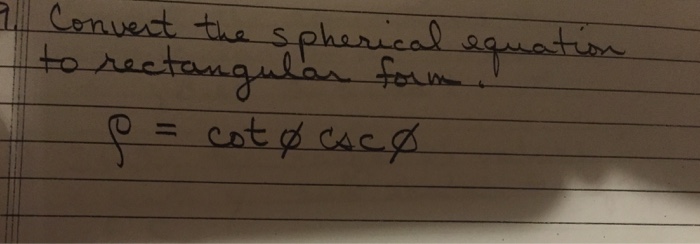 9. Convert the spherical equation
to rectangular form.
ρ = cot ϕ csc ϕ